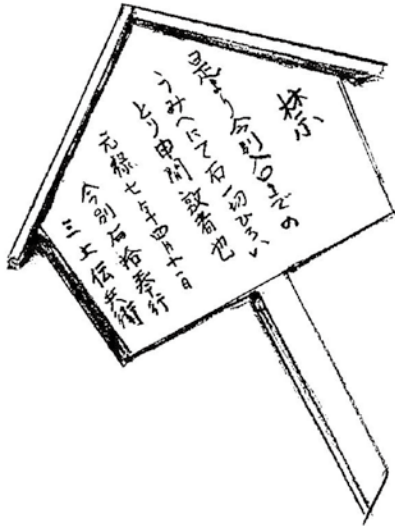 禁
是より今別入口までの
うみべにて石一切ひろい
とり申間敷者也
元禄七年四月十一日
今別石拾奉行
三上伝兵衛